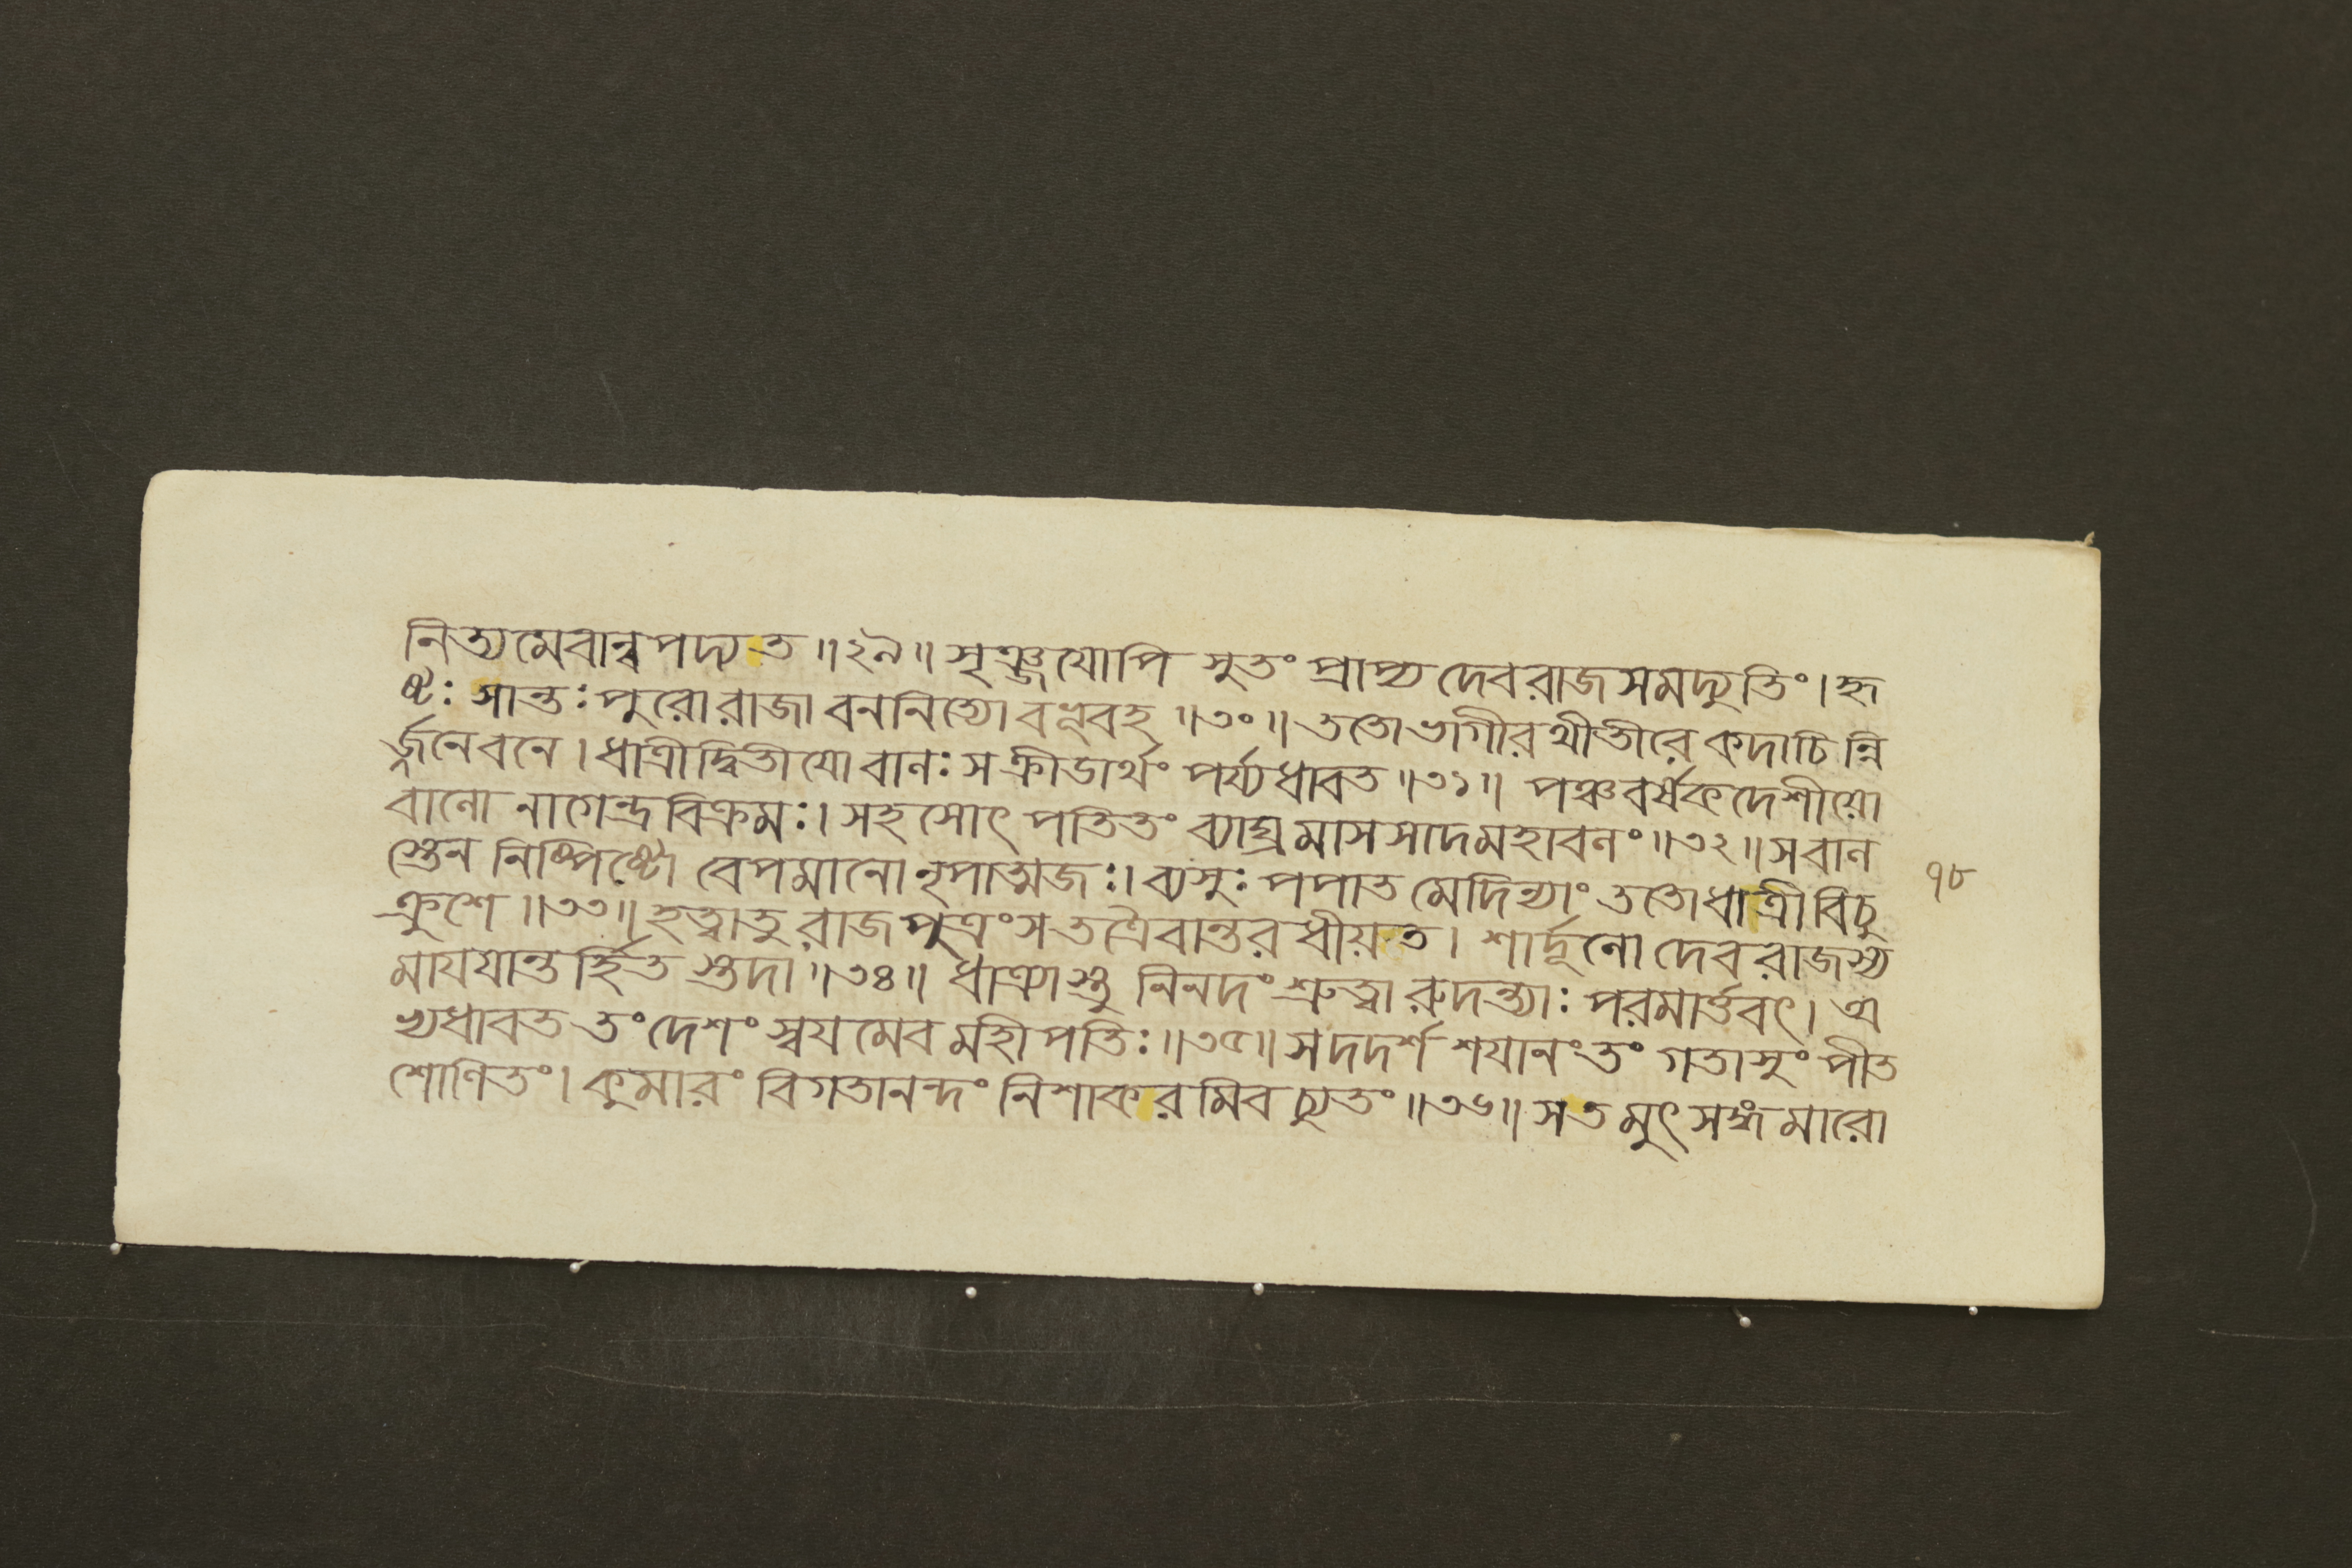 নিত্যমেবান্বপদ্যত॥২৯॥ সৃঞ্জযোপি সুতং প্রাপ্য দেবরাজসমদ্যুতিং।হৃ
ষ্টঃ সান্তঃপুরোরাজা বননিত্যোবভূবহ॥৩০॥ততোভাগীরথীতীরে কদাচিন্নি
র্জনেবনে।ধাত্রীদ্বিতীযোবালঃসক্রীডার্থং পর্য্যধাবত॥৩১॥ পঞ্চবর্ষকদেশীয়ো
বালো নাগেন্দ্রবিক্রমঃ।সহসোৎপতিতং ব্যাঘ্রমাসসাদমহাবলং॥৩২॥সবাল
স্তেন নিষ্পিষ্টো বেপমানো নৃপাত্মজঃ।ব্যসুঃ পপাত মেদিন্যাং ততোধাত্রীবিচু
ক্রুশে॥৩৩॥হত্বাতু রাজপুত্রংসতত্রৈবান্তরধীয়ত। শার্দ্দূলো দেবরাজস্য
মাযযান্তর্হিতস্তদা॥৩৪॥ ধাত্র্যাস্তু নিনদং শ্রুত্বা রুদন্ত্যাঃ পরমার্ত্তবৎ।অ
ভ্যধাবত তংদেশং স্বযমেবমহীপতিঃ॥৩৫॥সদদর্শ শযানংতং গতাসুং পীত
শোণিতং।কুমারং বিগতানন্দং নিশাকরমিবচ্যুতং॥৩৬॥সতমুৎসঙ্গমারো
৭৮